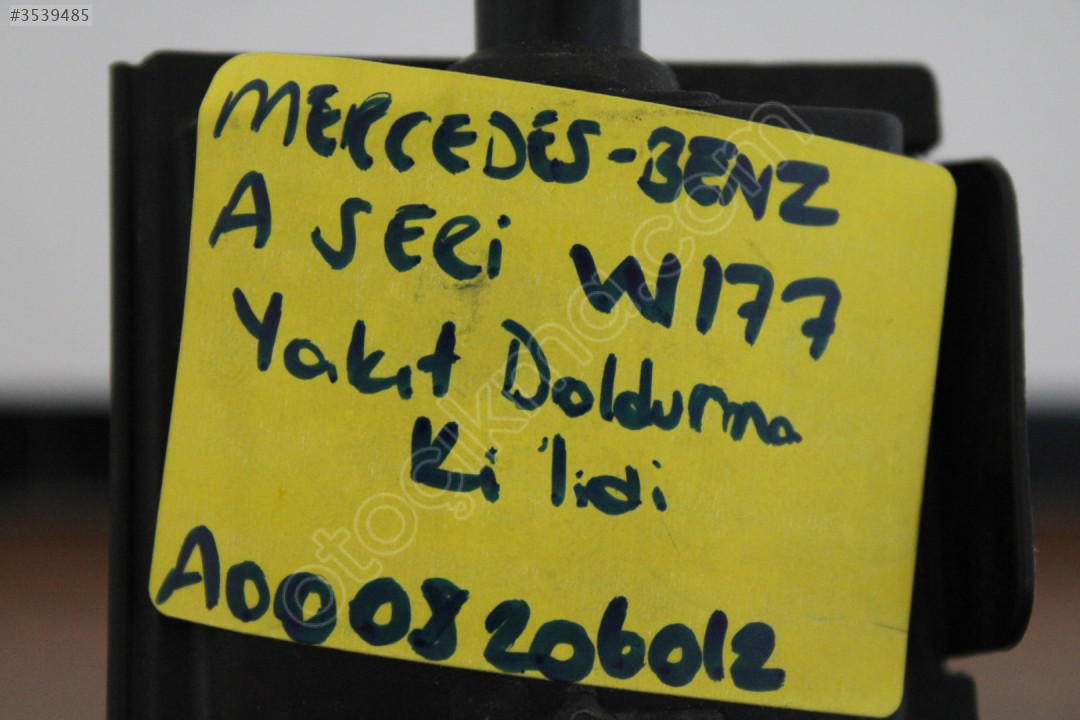 #3539485
MERCEDES-BENZ
A SERİ W177
Yakıt Doldurma
Kilidi
A0008206012
otocikma.com